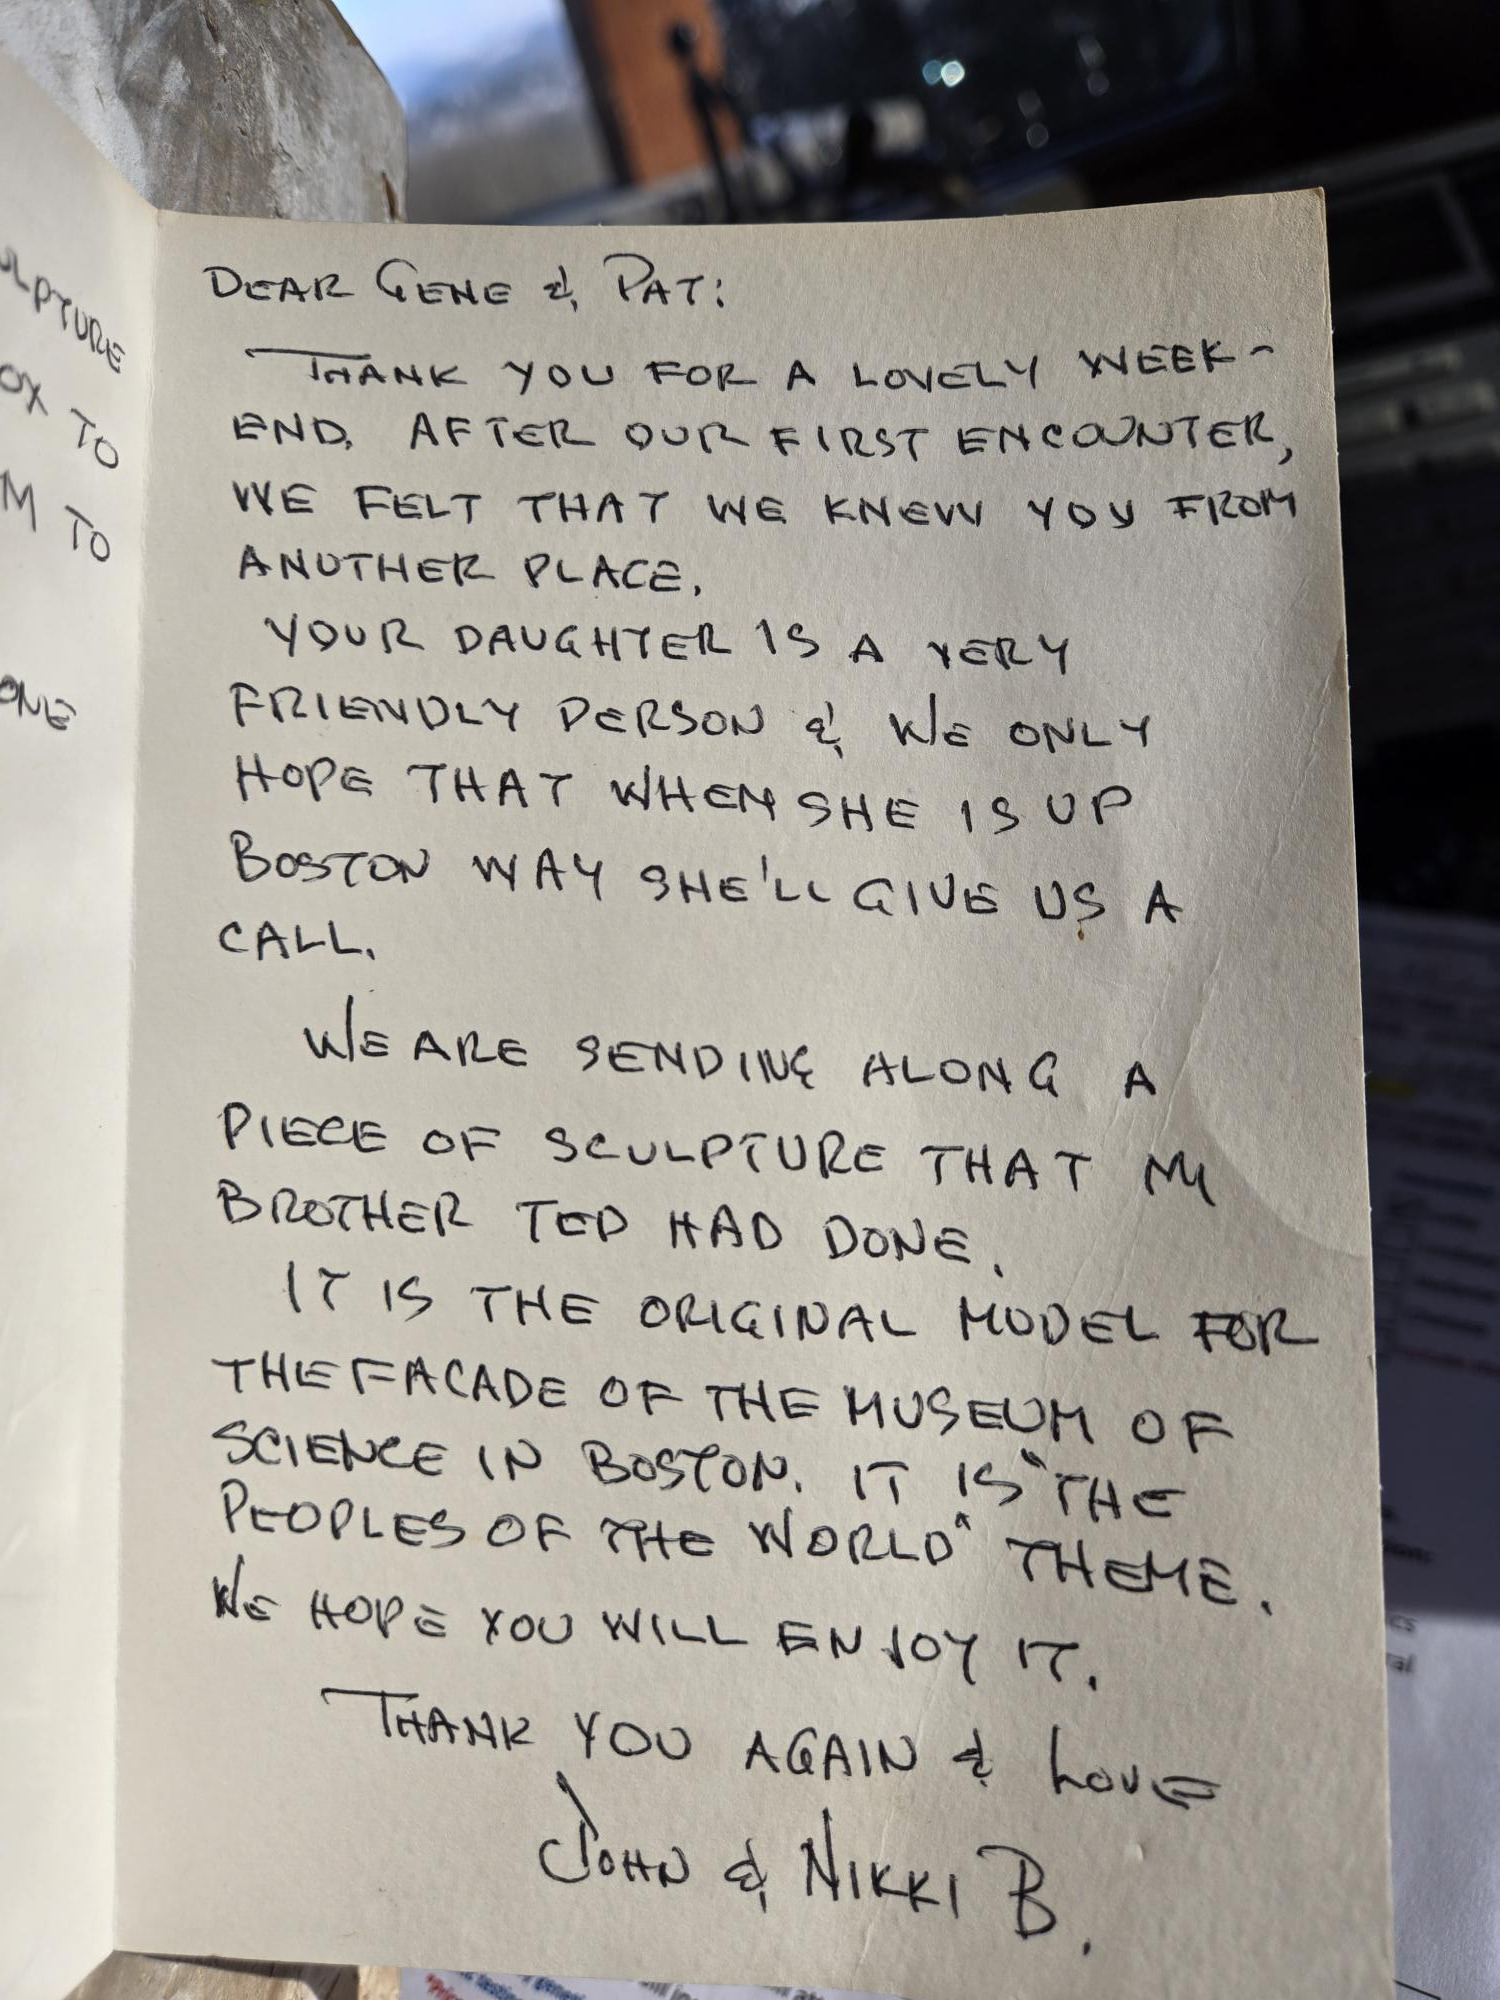 DEAR GENE & PAT:
THANK YOU FOR A LOVELY WEEK-
END. AFTER OUR FIRST ENCOUNTER,
WE FELT THAT WE KNEW YOU FROM
ANOTHER PLACE.
YOUR DAUGHTER IS A VERY
FRIENDLY PERSON & WE ONLY
HOPE THAT WHEN SHE IS UP
BOSTON WAY SHE'LL GIVE US A
CALL.
WE ARE SENDING ALONG A
PIECE OF SCULPTURE THAT MY
BROTHER TED HAD DONE.
IT IS THE ORIGINAL MODEL FOR
THE FACADE OF THE MUSEUM OF
SCIENCE IN BOSTON. IT IS "THE
PEOPLES OF THE WORLD" THEME.
WE HOPE YOU WILL ENJOY IT.
THANK YOU AGAIN & LOVE
JOHN & NIKKI B.
TO
TO